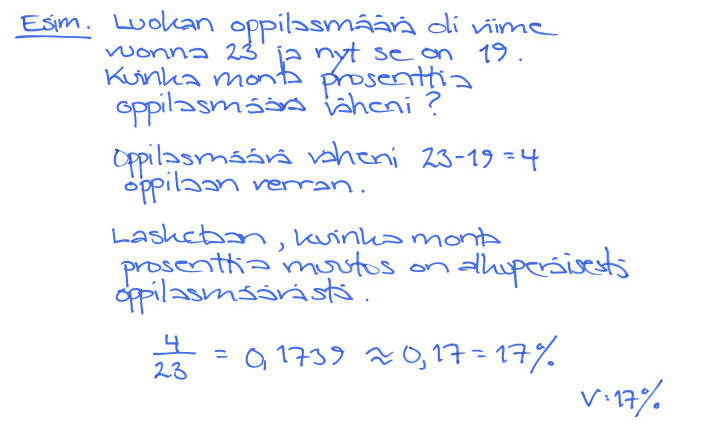 Esim. Luokan oppilasmäärä oli viime
vuonna 23 ja nyt se on 19.
Kuinka monta prosenttia
oppilasmäärä väheni?
Oppilasmäärä väheni 23-19=4
oppilaan verran.
Lasketaan, kuinka monta
prosenttia muutos on alkuperäisestä
oppilasmäärästä.
4/23 = 0,1739 ≈ 0,17 = 17%
V:17%